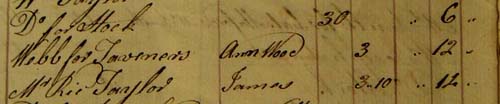 Do for Stock 30 " 6 "
Webb for Taveners Ann Wood 3 " 12 "
Mr Ric Taylor James 3-10 " 12 "